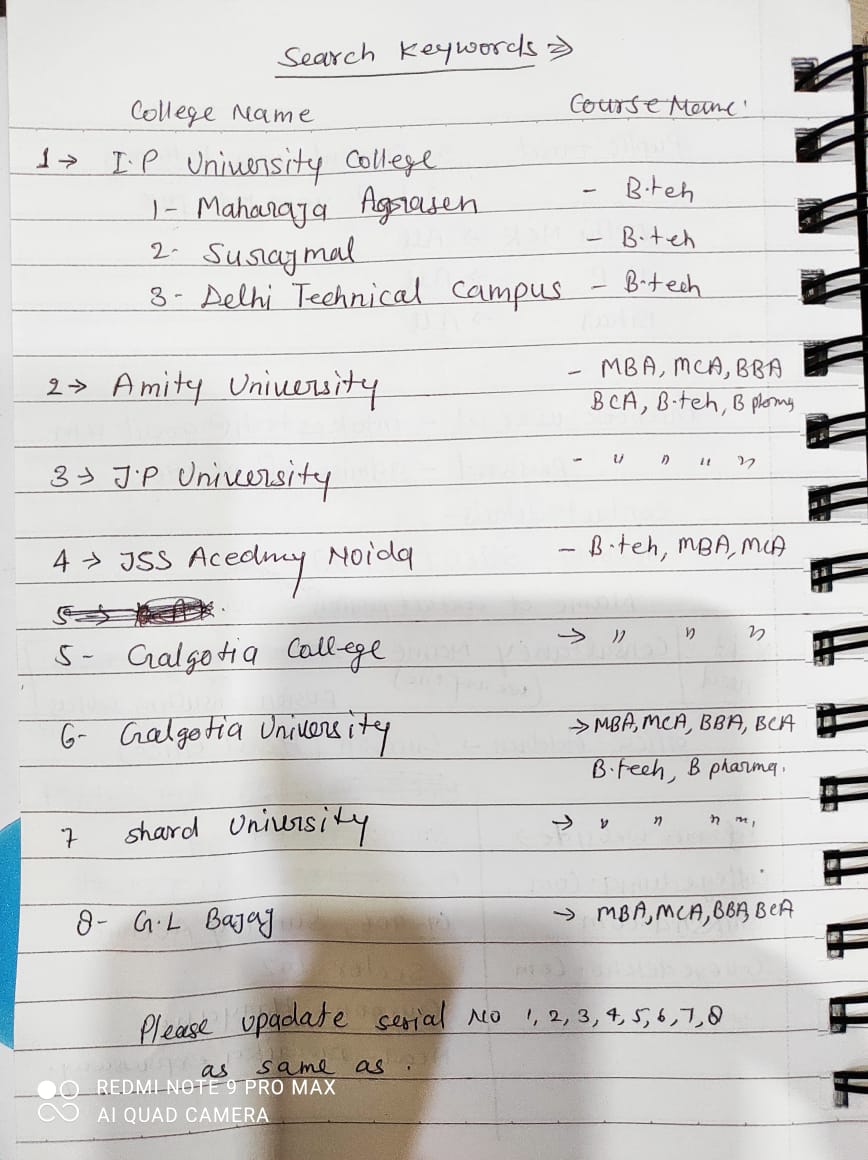 Search Keywords ⇒
College Name Course Mame'
1→ I.P University College
1- Maharaja Agrasen - B.teh
2- Surajmal - B.teh
3- Delhi Technical Campus - B.tech
2→ Amity University - MBA, MCA, BBA
BCA, B.teh, B
3→ J.P University - " " " "
4→ JSS Acedmy Noida - B.teh, MBA, MCA
5→
5- Galgotia College → " " "
6- Galgotia University → MBA, MCA, BBA, BCA
B.tech, B pharma.
7 shard University → " " " "
8- G.L Bajaj → MBA, MCA, BBA, BCA
Please upadate serial No 1, 2, 3, 4, 5, 6, 7, 8
as same as .
REDMI NOTE 9 PRO MAX
AI QUAD CAMERA